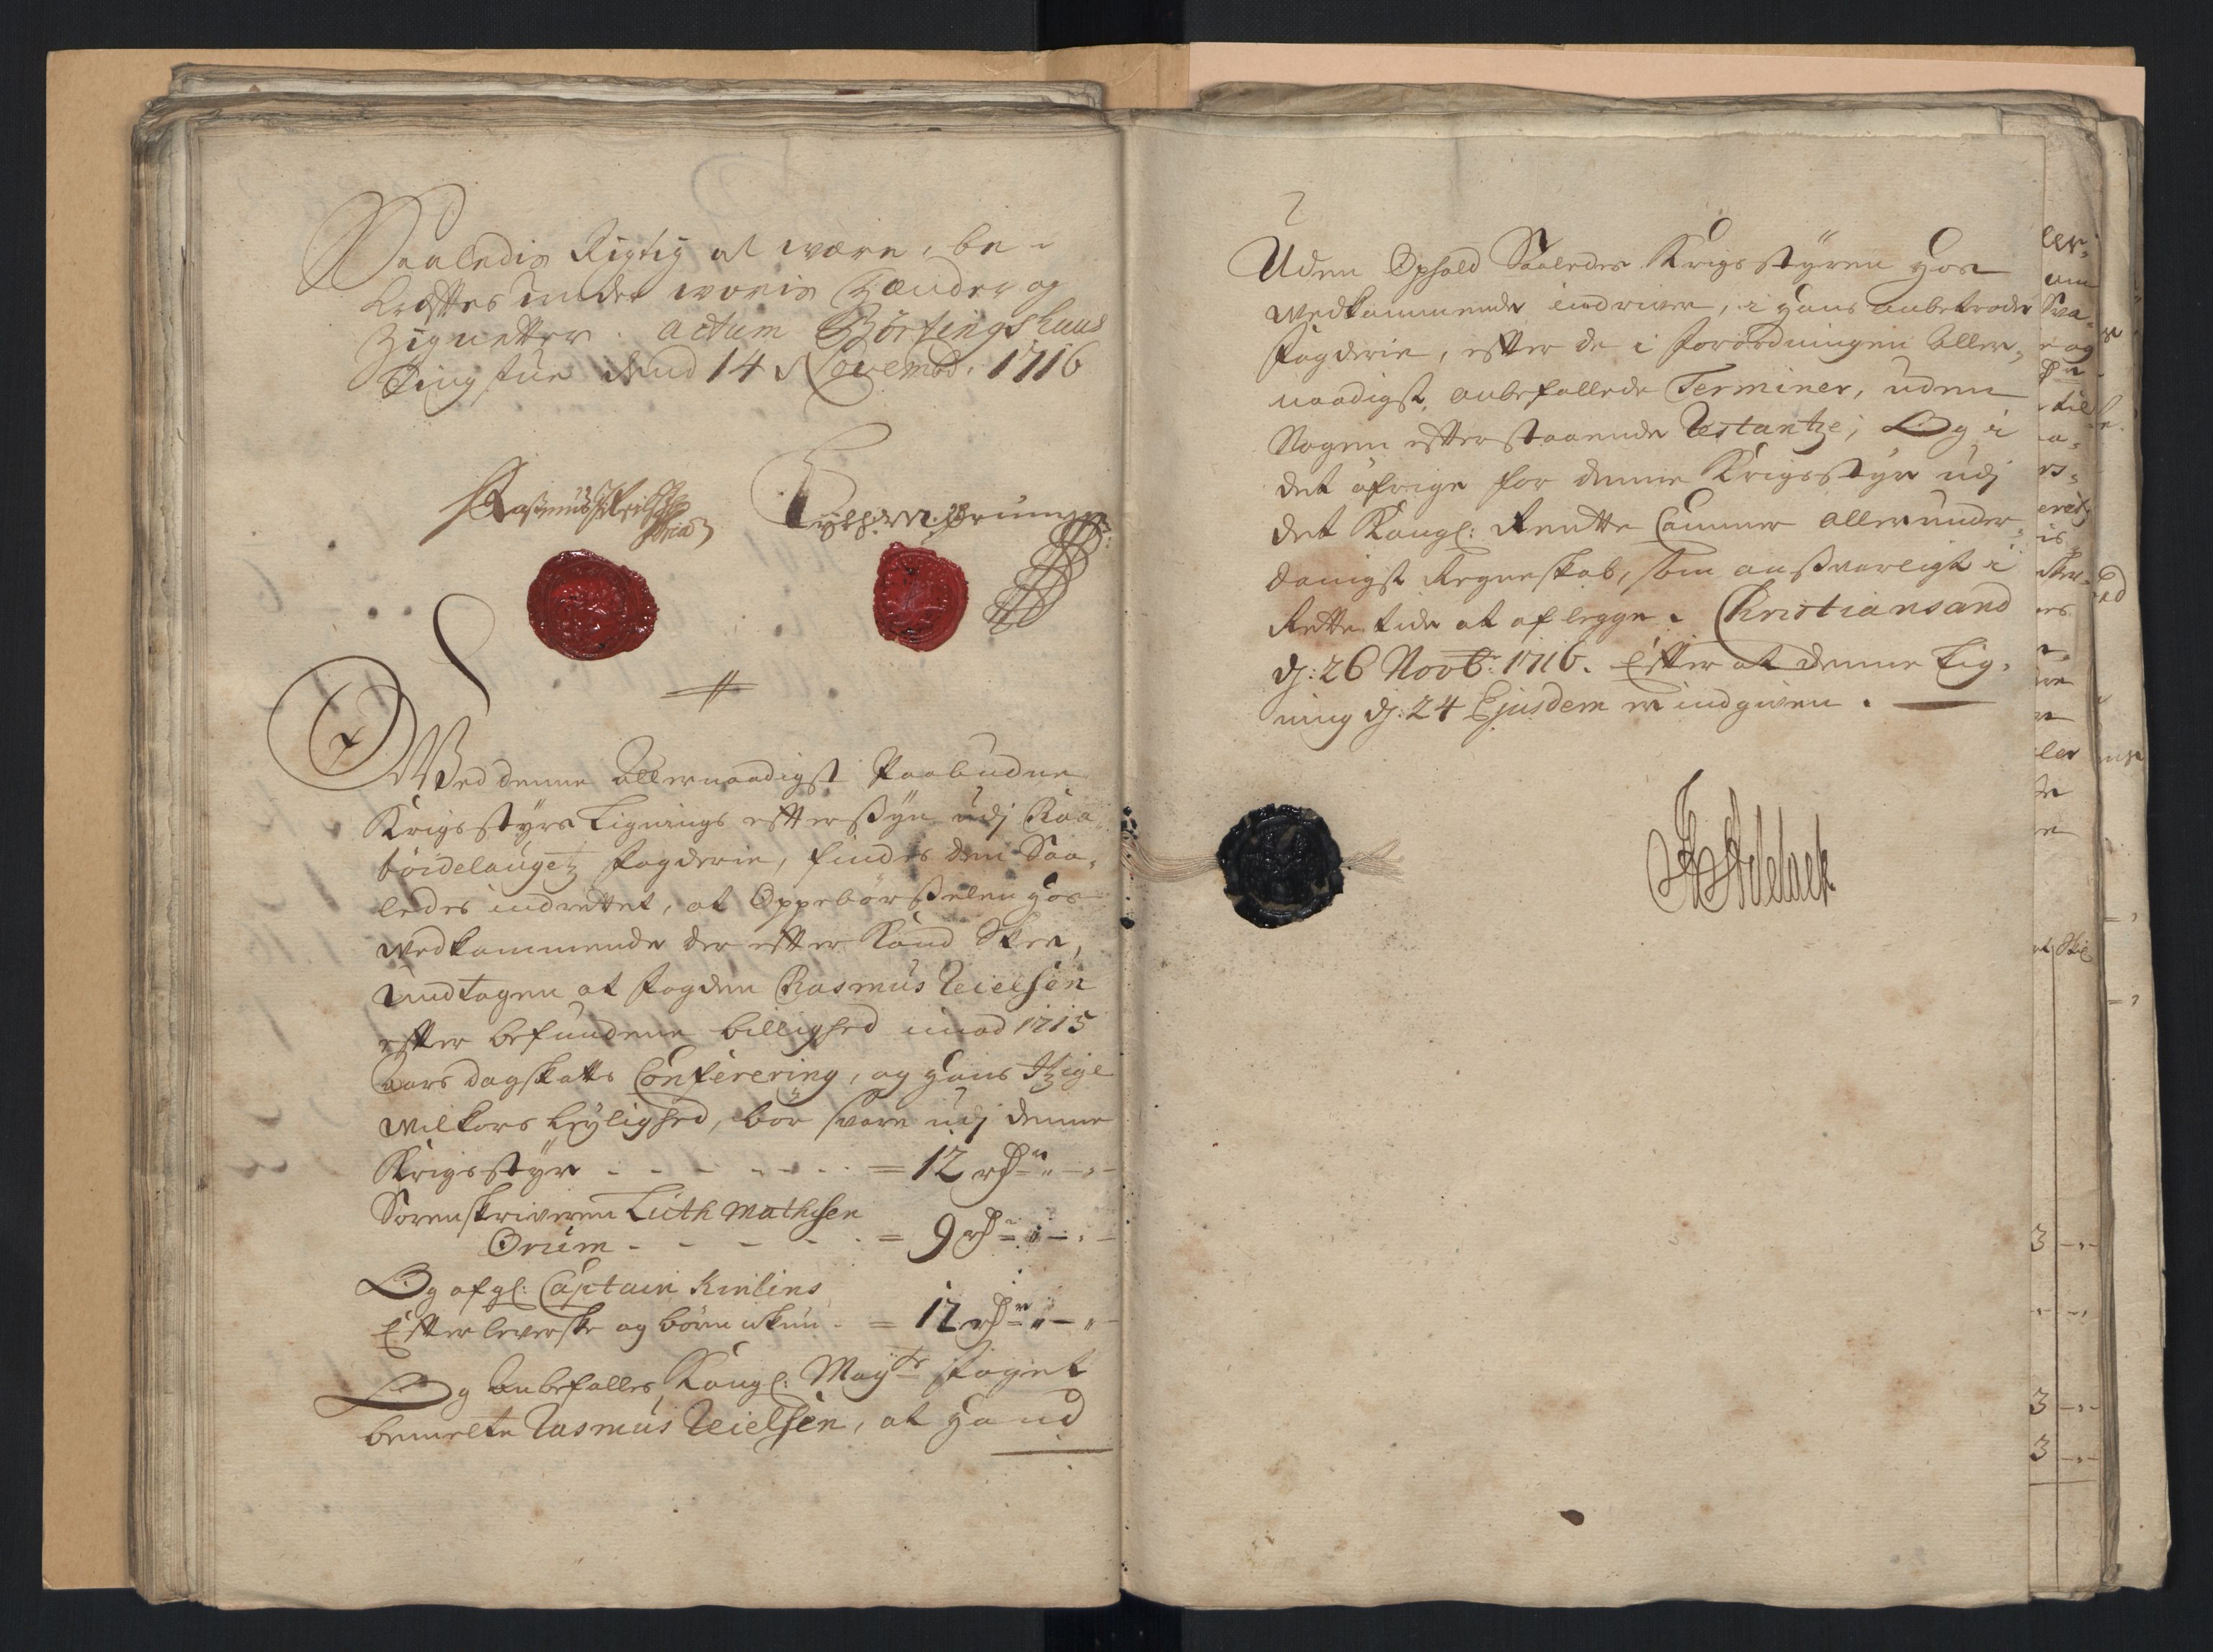 Saaledis Rigtig at være, be-
kræfftes under woris Hænder og
Zignetter. actum Børtingshuus
Ting stue dend 14 Novembr. 1716
Wed denne Allernaadigst Paabudne
Krigsstyrs Lignings effterssyn udj Raa-
böidelauget Fogderie, findis den Saa-
ledes indrettet, at Oppebörsselen hos
wedkommende der effter kand Skee,
Undtagen at Fogden Rasmus Neielsen
effter befundene billighed imod 1715
Aars dagskatts Conferering, og hans Itzige
wilkors leylighed, bör svare udj denne
Krigsstyr - - - - - = 12 rdr " - " -
Sorenskriveren Luth Mathesen
Orum - - - - - = 9 rdr " - " -
Og afgl: Captain
Effterleverske og börn ickun - = 12 rdr " - " -
Og anbefalles Kongl: Mayts Foget
bemelte Rasmus Neielsen, at hand
Uden Ophold Saaledes Krigsstyren hos
wedkommende inddriver, i hans anbetroede
Fogderie, effter de i Forordningen Aller-
naadigst anbefallede Terminer, uden
Nogen effterstaaende Restantze; Og i
det öfrige for denne Krigsstyr udj
det Kongl: Rentte Cammer allerunder-
danigst Regneskab, som ansvarligt i
Rette tide at aflegge. Christiansand
dj: 26 Novbr: 1716. Effter at denne Lig-
ning dj: 24 Ejusdem er indgiven.